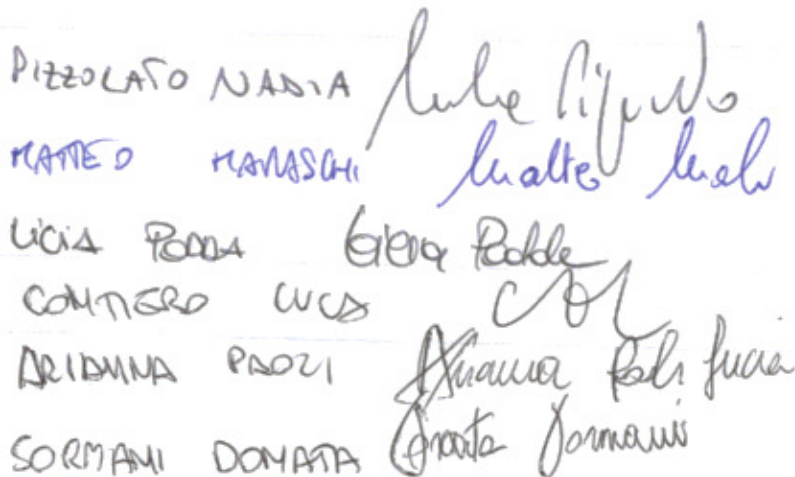 PIZZOLATO NADIA
MATTEO MARASCHI Matteo
LICIA PODDA Licia Podda
COMTIERO LUCA
ARIANNA PAOLI Arianna Paoli
SORMANI DONATA Donata Sormani